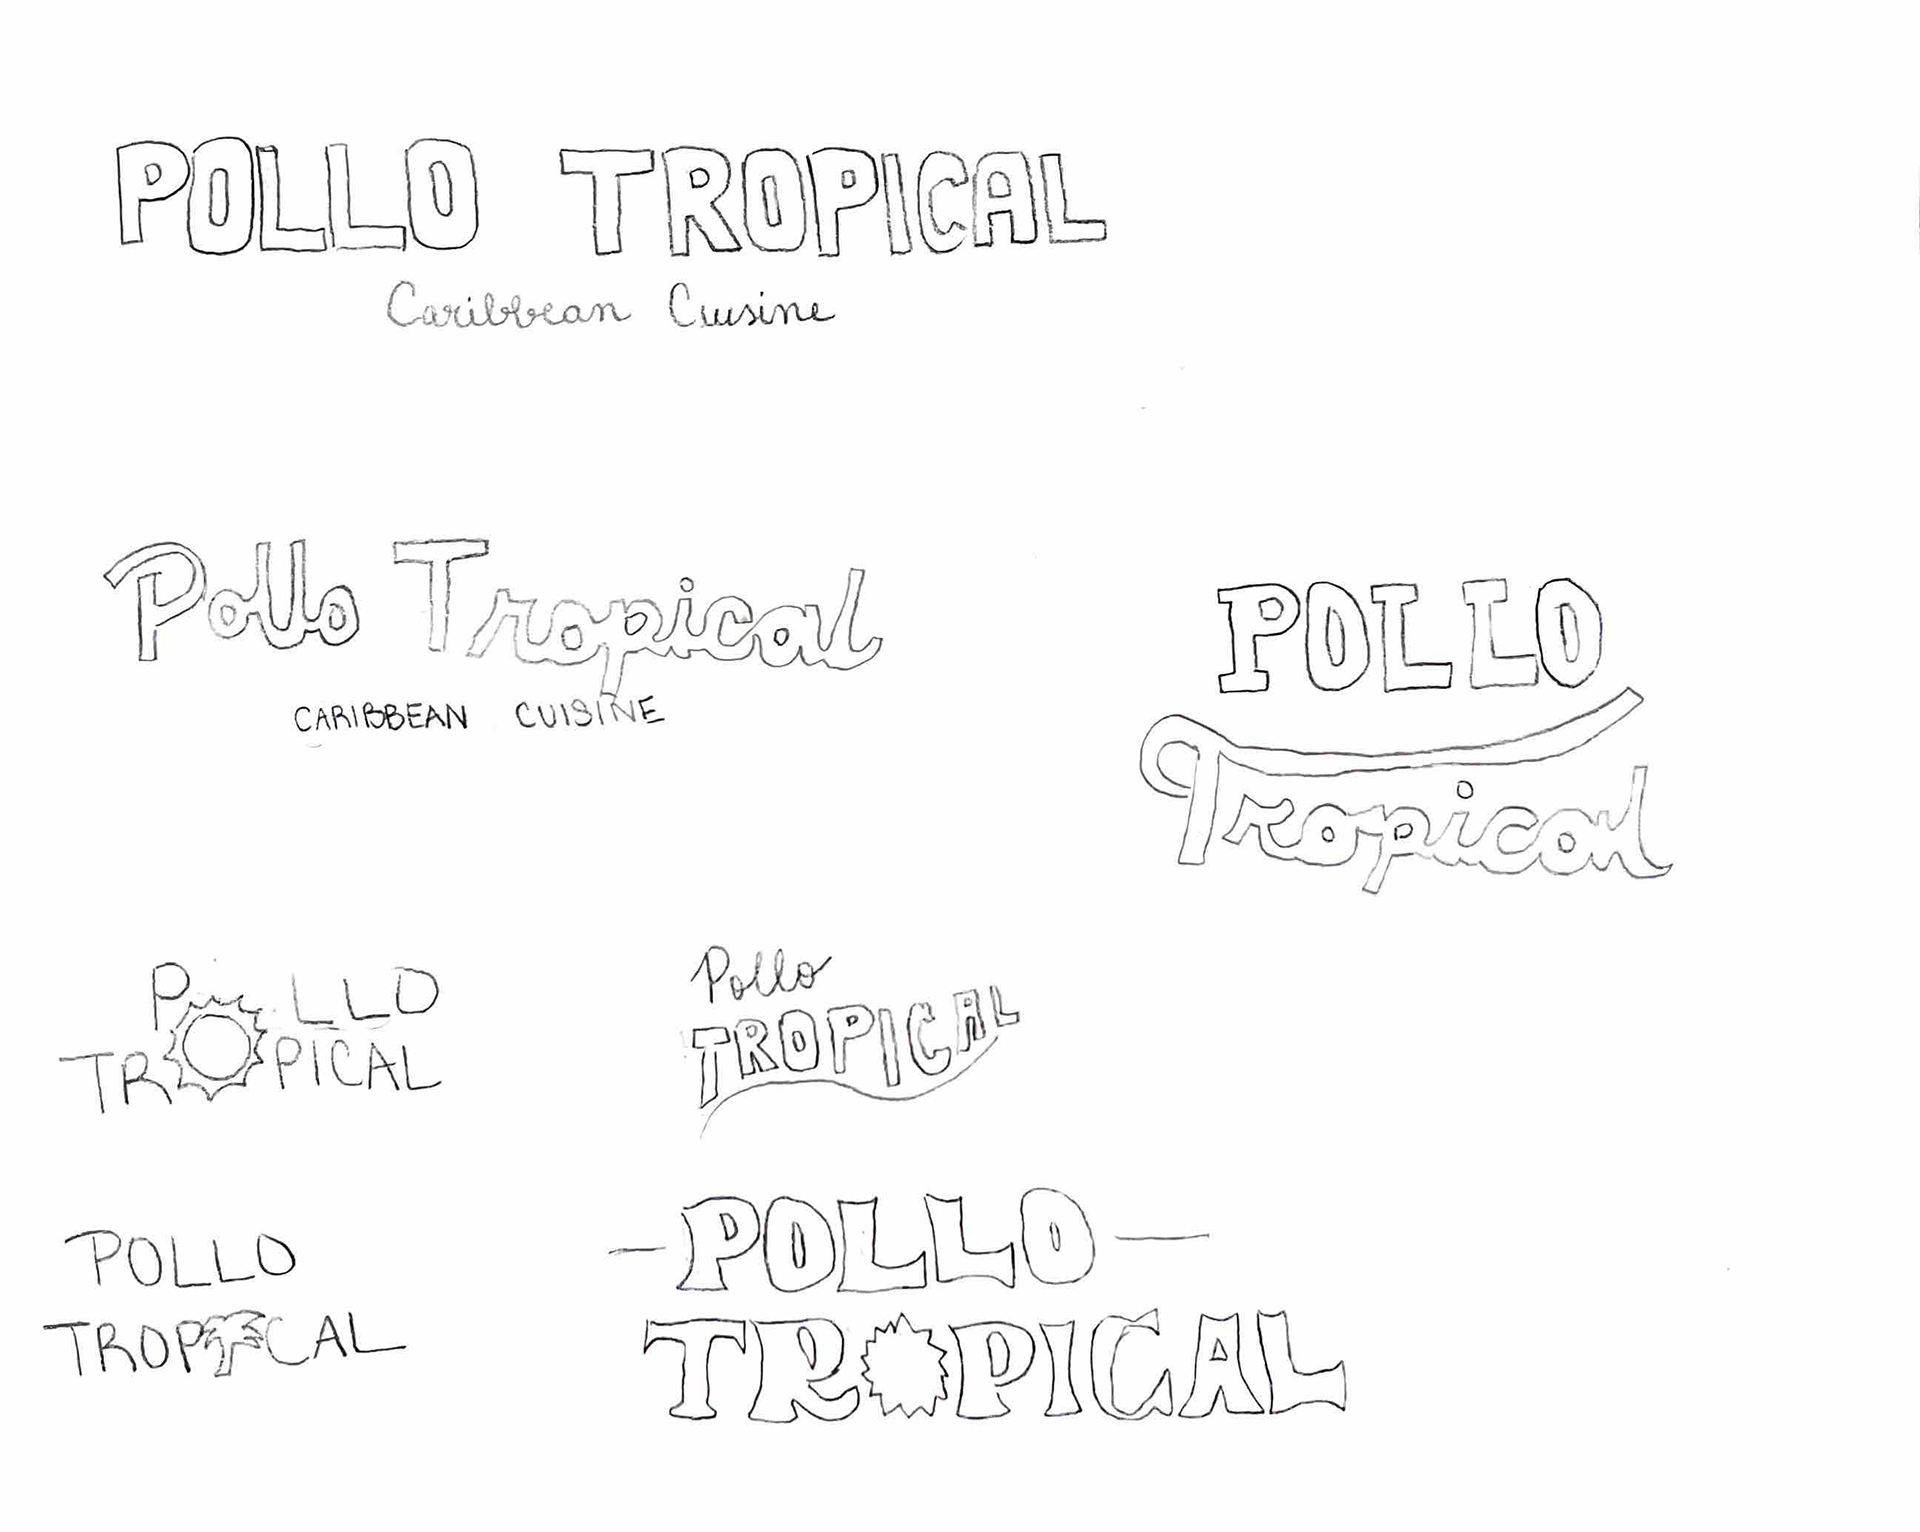 POLLO TROPICAL
Caribbean Cuisine
Pollo Tropical
CARIBBEAN CUISINE
POLLO
Tropical
POLLO
TROPICAL
Pollo
TROPICAL
POLLO
TROPICAL
-POLLO-
TROPICAL